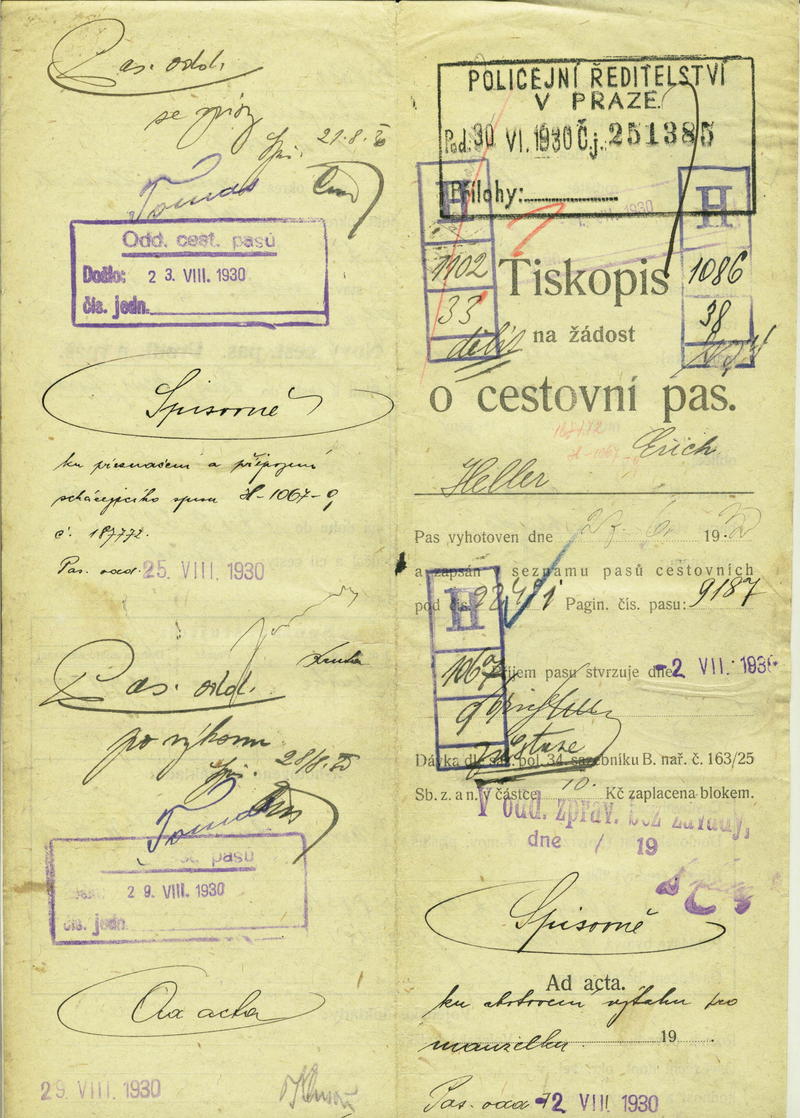 Pas. odd.
se zprávy
21.8.30
Tomas
Odd. cest. pasů
Došlo: 23. VIII. 1930
čís. jedn.
Spisovně
ku přeznačení a připojení
scházejícího spisu H-1067-9
č. 187772.
Pas. odd. 25. VIII. 1930
Pas. odd.
po výkonu
28/8. 30
Tomas
pasů
29. VIII. 1930
čís. jedn.
Ad acta
29. VIII. 1930
POLICEJNÍ ŘEDITELSTVÍ
V PRAZE.
Pod. 30 VI. 1930 Č.j. 251385
Přílohy:
H
1102
33
H
1086
38
Tiskopis
na žádost
o cestovní pas.
187772
H-1067-9
Erich
Heller
Pas vyhotoven dne 27. 6. 1930
a zapsán v seznamu pasů cestovních
pod čís. Pagin. čís. pasu: 9187
H
1067
9
Příjem pasu stvrzuje dne -2 VII. 1930
Dávka dle saz. pol. 34 sazebníku B. nař. č. 163/25
Sb. z. a n. v částce 10.- Kč zaplacena blokem.
V odd. zpráv. bez závady,
dne / 19
Spisovně
Ad acta.
ku vyhotovení výtahu pro
manželku 19
Pas. odd. -2 VII. 1930